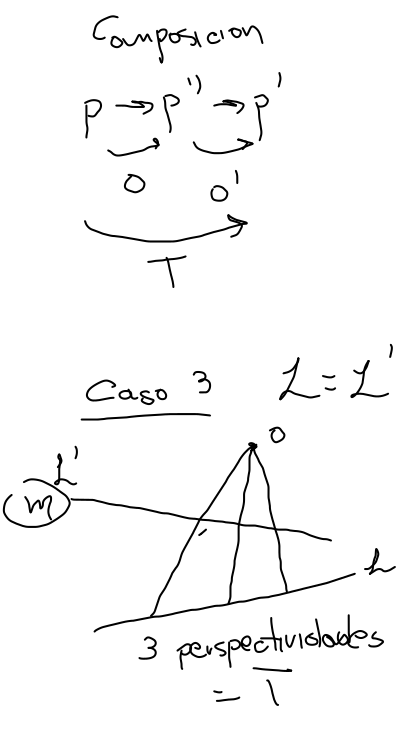 Composicion
P → P'' → P'
O O'
T
Caso 3 L = L'
O
L'
m
L
3 perspectividades
= T